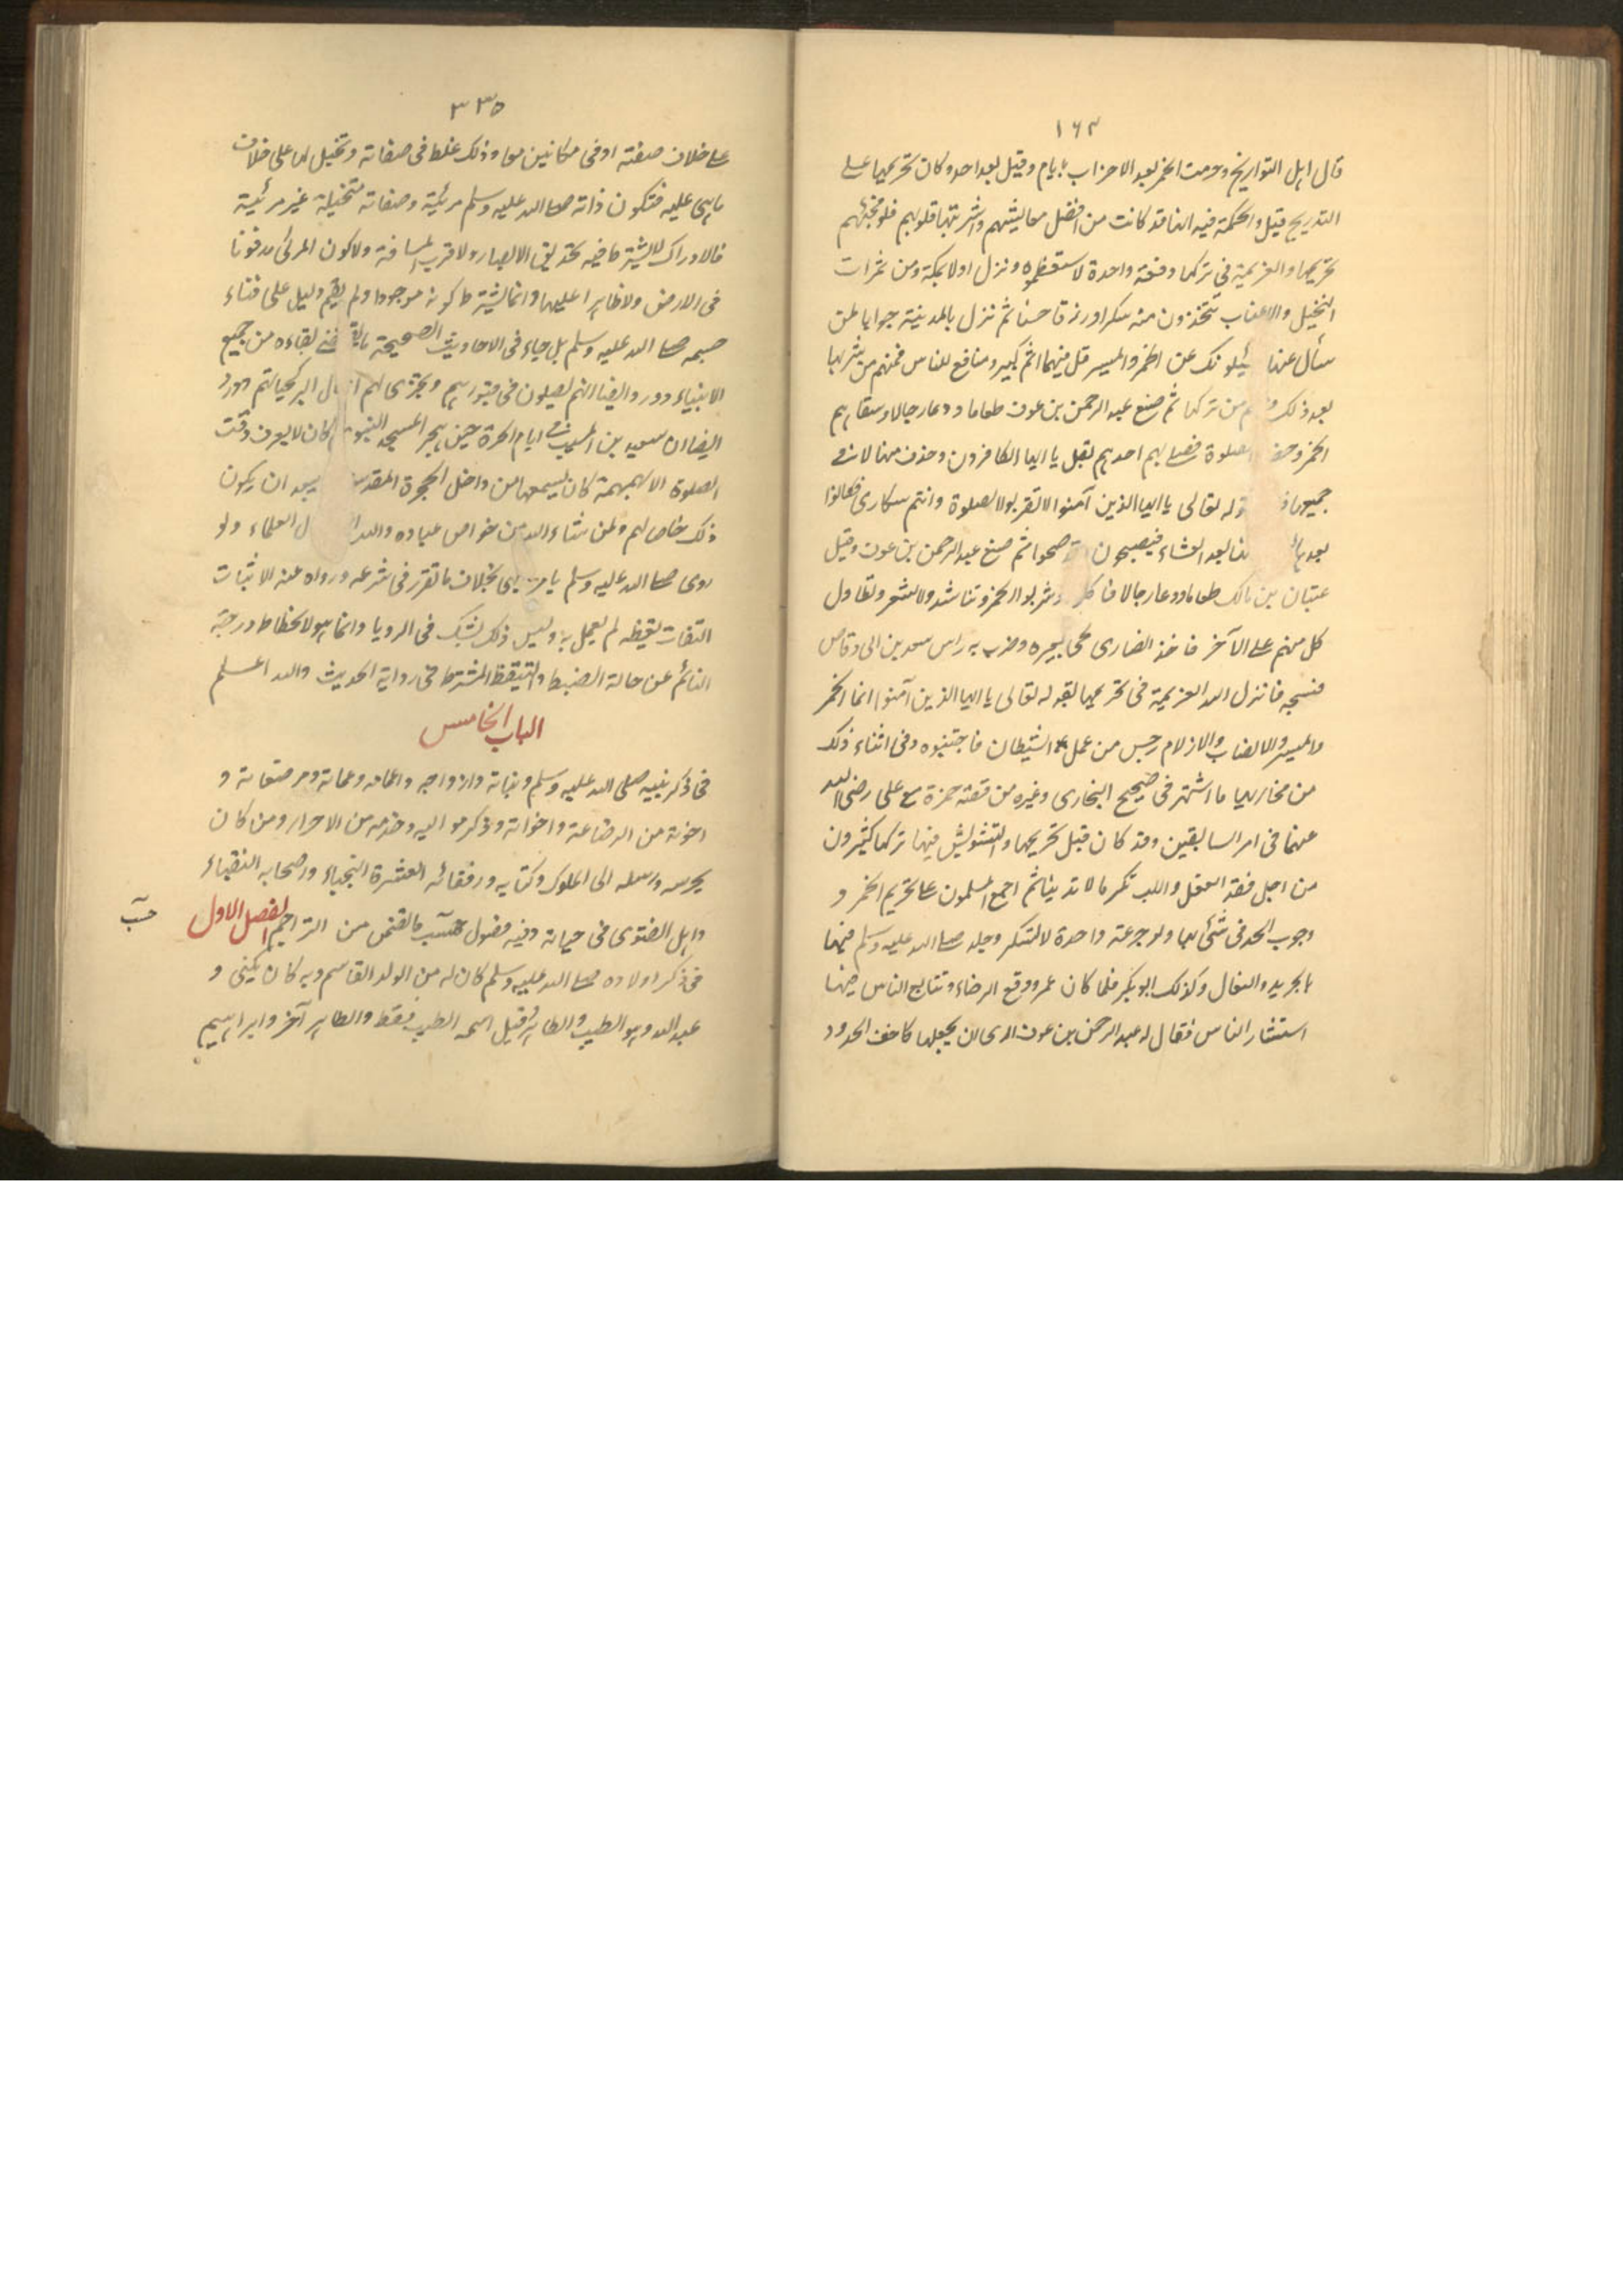 ١٦٣
قال اہل التواریخ وحرمت الخمر بعد الاحزاب بایام وقیل بعد احد وکان تحریمہا علے
التدریج قیل والحکمة فیہ انہا قد کانت من افضل معایشہم واشربتہا قلوبہم فلو فجئہم
تحریمہا والعزیمة فی ترکہا دفعة واحدة لاستعظموہ ونزل اولا بمکة ومن ثمرات
النخیل والاعناب تتخذون منہ سکرا ورزقا حسنا ثم نزل بالمدینة جوابا لمن
سأل عنہا یسئلونک عن الخمر والمیسر قل فیہما اثم کبیر ومنافع للناس فمنہم من شربہا
بعد ذلک من ترکہا ثم صنع عبد الرحمن بن عوف طعاما ودعا رجالا وسقاہم
الخمر الصلوة فصلے بہم احدہم قل یا ایہا الکافرون وحذف منہا لا فے
جمیعہا قولہ تعالی یا ایہا الذین آمنوا لا تقربوا الصلوة وانتم سکاری فکانوا
بعد العشاء فیصبحون صحوا ثم صنع عبد الرحمن بن عوف وقیل
عتبان بن مالک طعاما ودعا رجالا وشربوا الخمر وتناشدوا الشعر وتطاول
کل منہم علے الآخر فاخذ انصاری لحی بعیرہ وضرب بہ راس سعد بن ابی وقاص
فشجہ فانزل اللہ العزیمة فی تحریمہا بقولہ تعالی یا ایہا الذین آمنوا انما الخمر
والمیسر والانصاب والازلام رجس من عمل الشیطان فاجتنبوہ وفی اثناء ذلک
من مخازیہا ما اشتہر فی صحیح البخاری وغیرہ من قصة حمزة مع علی رضی اللہ
عنہما فی امر السابقین وقد کان قبل تحریمہا والتشویش فیہا ترکہا کثیرون
من اجل فقد العقل واللب تکرما لا تدینا ثم اجمع المسلمون علے تحریم الخمر و
وجوب الحد فی شئ منہا ولو جرعة واحدة لا تسکر وجلد صلے اللہ علیہ وسلم فیہا
بالجرید والنعال وکذلک ابو بکر فلما کان عمر ووقع الرخاء وتتابع الناس فیہا
استشار الناس فقال لہ عبد الرحمن بن عوف اری ان یجعلہا کاخف الحدود
٣٣٥
علے خلاف صفتہ او فی مکانین معا وذلک غلط فی صفاتہ وتخیل لہا علی خلاف
ما ہی علیہ فتکون ذاتہ صلے اللہ علیہ وسلم مرئیة وصفاتہ متخیلة غیر مرئیة
فالادراک لا یشترط فیہ تحدیق الابصار ولا قرب المسافة ولا کون المرئی مدفونا
فی الارض ولا ظاہرا علیہا وانما یشترط کونہ موجودا ولم یقم دلیل علی فناء
جسمہ صلے اللہ علیہ وسلم بل جاء فی الاحادیث الصحیحة ما بقاءہ من جمیع
الانبیاء وورد ایضا انہم یصلون فی قبورہم وتجری لہم البر کحیاتہم وورد
ایضا ان سعید بن المسیب فی ایام الحرة حین ہجر المسجد النبوی کان لا یعرف وقت
الصلوة الا بہمہمة کان یسمعہا من داخل الحجرة المقدسة ان یکون
ذلک خاص لہم ولمن شاء اللہ من خواص عبادہ واللہ العلماء ولو
روی صلے اللہ علیہ وسلم یامر بخلاف ما تقرر فی شرعہ ورواہ عنہ الاثبات
الثقات یقیظہ لم یعمل بہ ولیس ذلک لشک فی الرویا وانما ہو لانحطاط درجة
النائم عن حالة الضبط والتیقظ المشترط فی روایة الحدیث واللہ اعلم
الباب الخامس
فی ذکر بنیہ صلی اللہ علیہ وسلم وبناتہ وازواجہ واعمامہ وعماتہ ومرضعاتہ و
اخوتہ من الرضاعة واخواتہ وذکر موالیہ وخدمہ من الاحرار ومن کان
یحرسہ ورسلہ الی الملوک وکتابہ ورفقائہ العشرة النجباء واصحابہ النقباء
واہل الفتوی فی حیاتہ وفیہ فصول حسب ما تضمن من التراجم الفصل الاول
حسب
فی ذکر اولادہ صلے اللہ علیہ وسلم کان لہ من الولد القاسم وبہ کان یکنی و
عبد اللہ وہو الطیب والطاہر وقیل اسمہ الطیب فقط والطاہر آخر وابراہیم